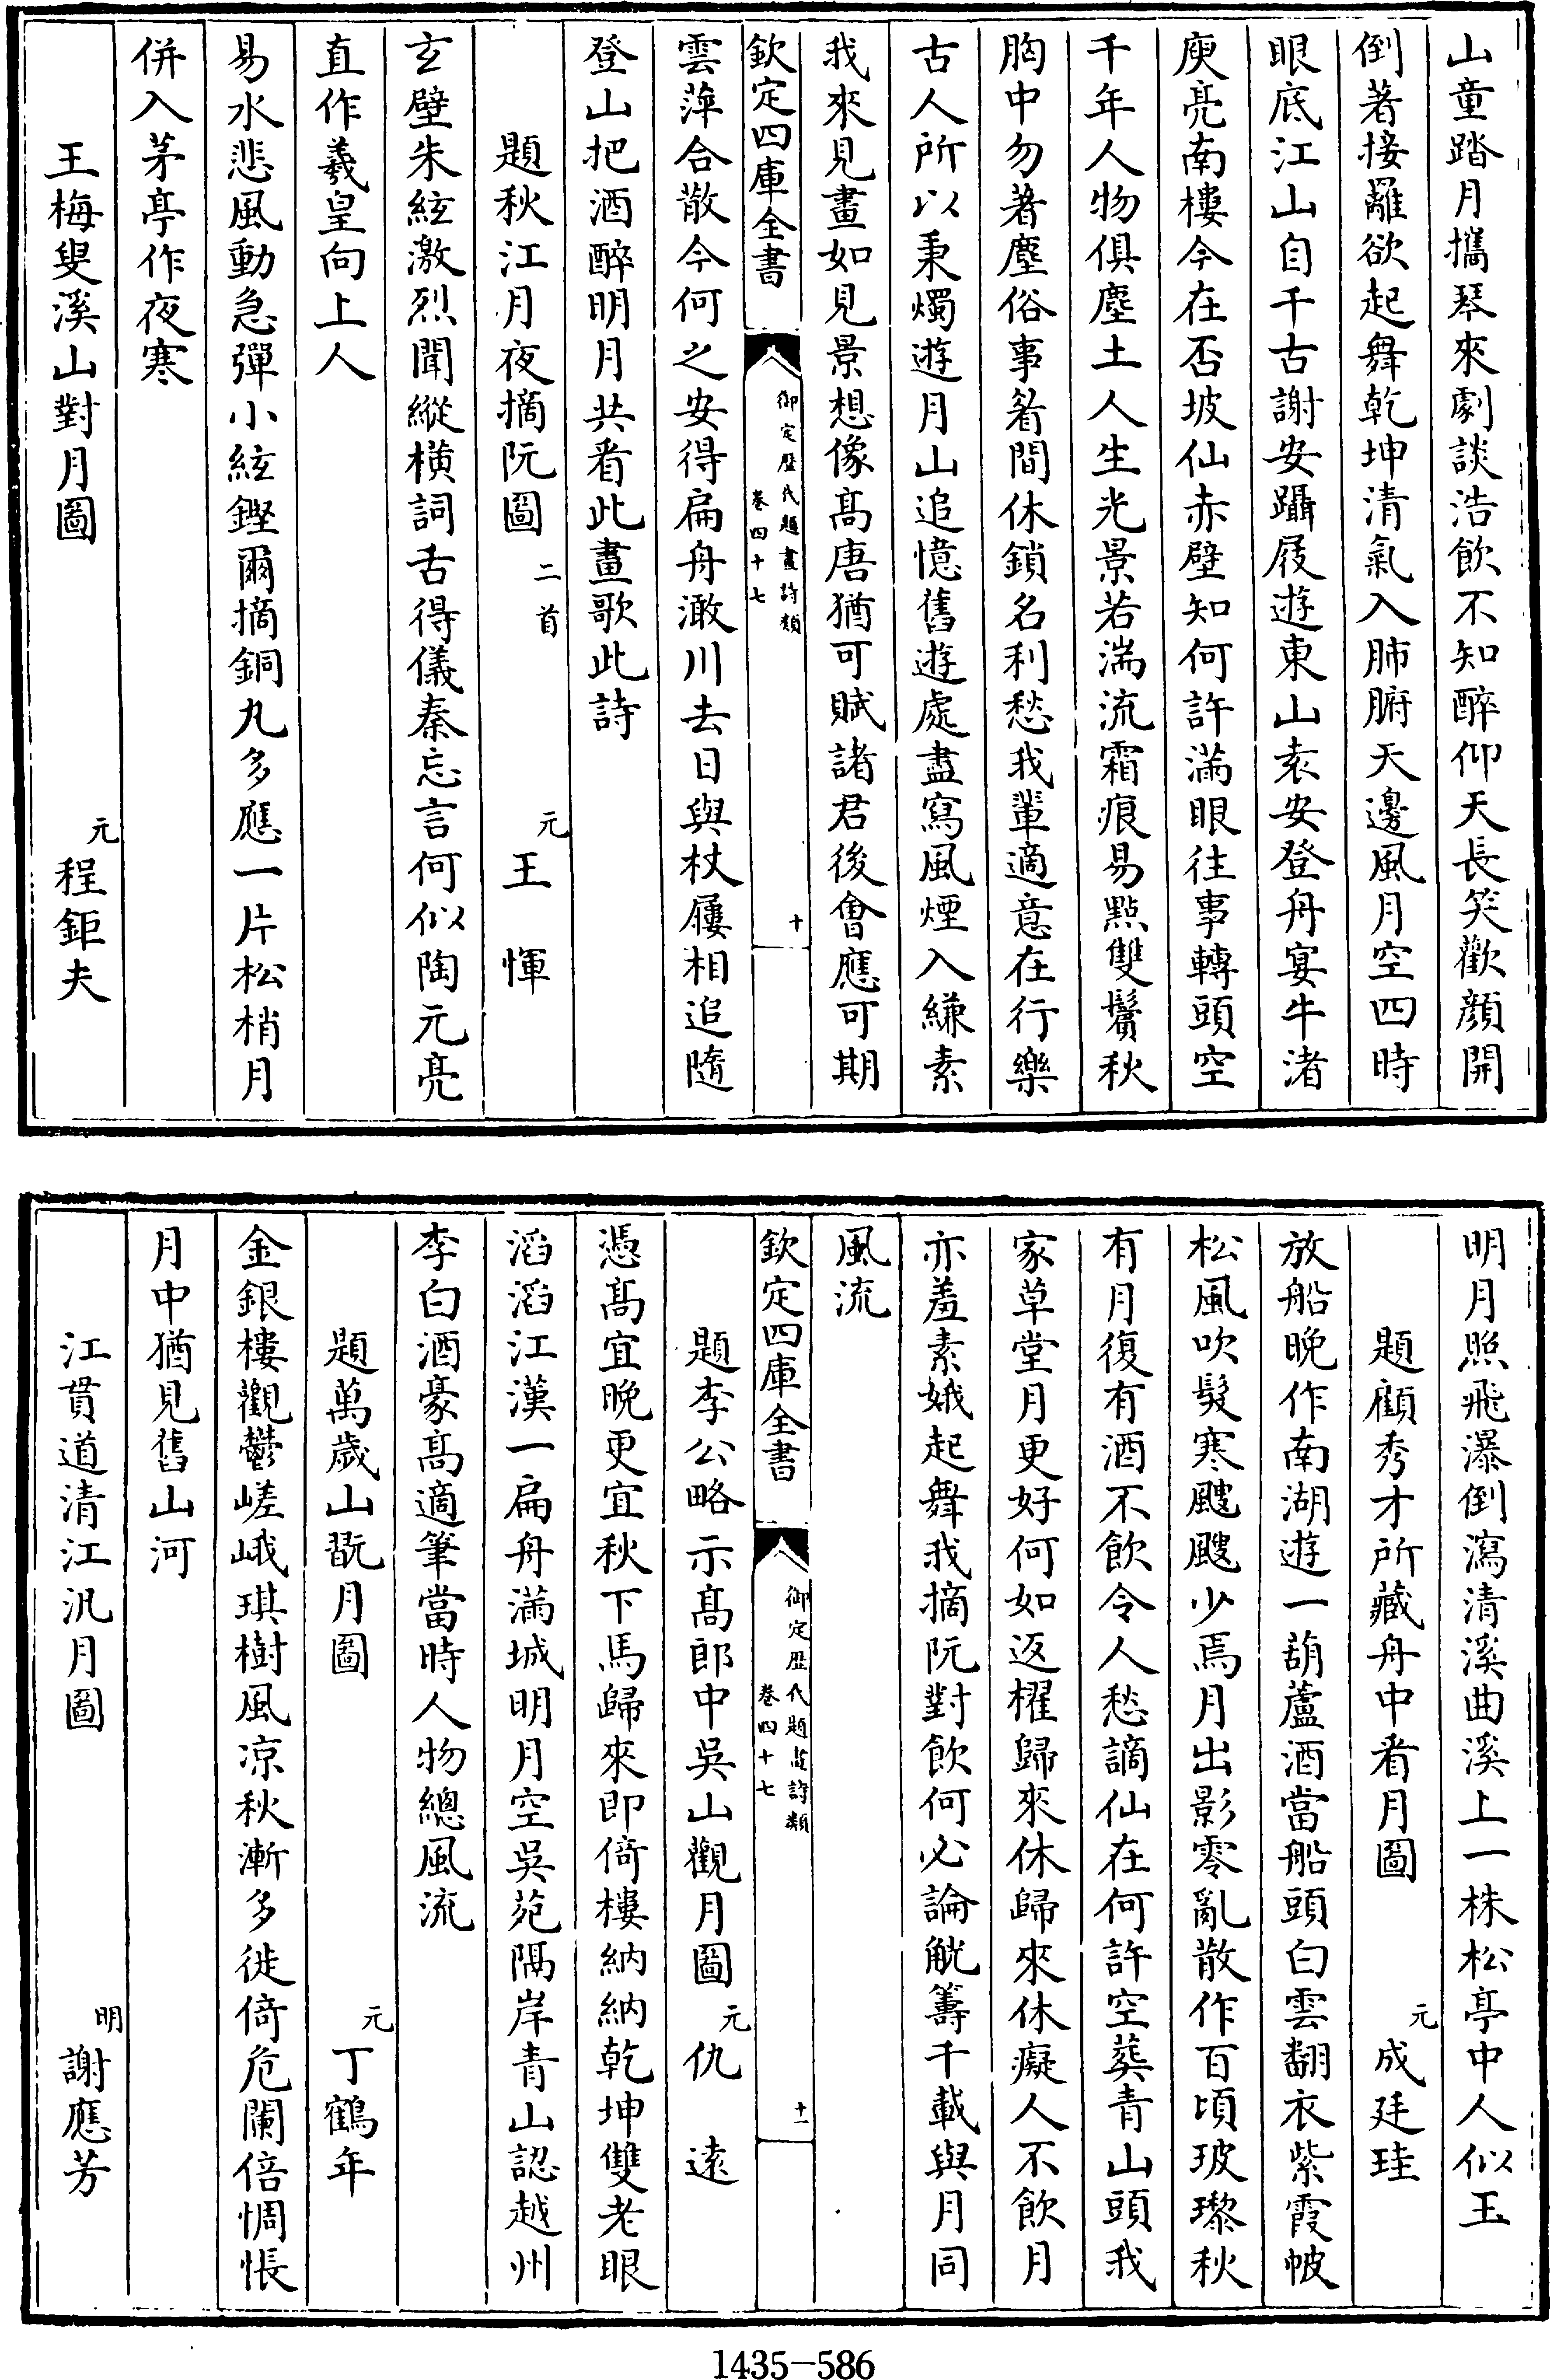 山童踏月攜琴來劇談浩飲不知醉仰天長笑歡顔開
倒著接䍦欲起舞乾坤清氣入肺腑天邊風月空四時
眼底江山自千古謝安躡屐遊東山袁安登舟宴牛渚
庾亮南樓今在否坡仙赤壁知何許滿眼往事轉頭空
千年人物俱塵土人生光景若湍流霜痕易點雙鬢秋
胸中勿著塵俗事眉間休鎖名利愁我輩適意在行樂
古人所以秉燭遊月山追憶舊遊處盡寫風煙入縑素
我來見畫如見景想像髙唐猶可賦諸君後會應可期
欽定四庫全書
御定歷代題畫詩類
卷四十七
十
雲萍合散今何之安得扁舟澉川去日與杖屨相追隨
登山把酒醉明月共看此畫歌此詩
題秋江月夜摘阮圖 二首 元 王 惲
玄壁朱絃激烈聞縱橫詞舌得儀秦忘言何似陶元亮
直作羲皇向上人
易水悲風動急彈小絃鏗爾摘銅丸多應一片松梢月
併入茅亭作夜寒
王梅叟溪山對月圖 元 程鉅夫
明月照飛瀑倒瀉清溪曲溪上一株松亭中人似玉
題顧秀才所藏舟中看月圖 元 成廷珪
放船晚作南湖遊一葫蘆酒當船頭白雲翻衣紫霞帔
松風吹髮寒颼颼少焉月出影零亂散作百頃玻瓈秋
有月復有酒不飲令人愁謫仙在何許空葬青山頭我
家草堂月更好何如返櫂歸來休歸來休癡人不飲月
亦羞素娥起舞我摘阮對飲何必論觥籌千載與月同
風流
欽定四庫全書
御定歷代題畫詩類
卷四十七
十一
題李公略示髙郎中吳山觀月圖 元 仇 遠
憑髙宜晚更宜秋下馬歸來即倚樓納納乾坤雙老眼
滔滔江漢一扁舟滿城明月空吳苑隔岸青山認越州
李白酒豪髙適筆當時人物總風流
題萬歲山翫月圖 元 丁鶴年
金銀樓觀鬱嵯峨琪樹風凉秋漸多徙倚危闌倍惆悵
月中猶見舊山河
江貫道清江汎月圖 明 謝應芳
1435-586